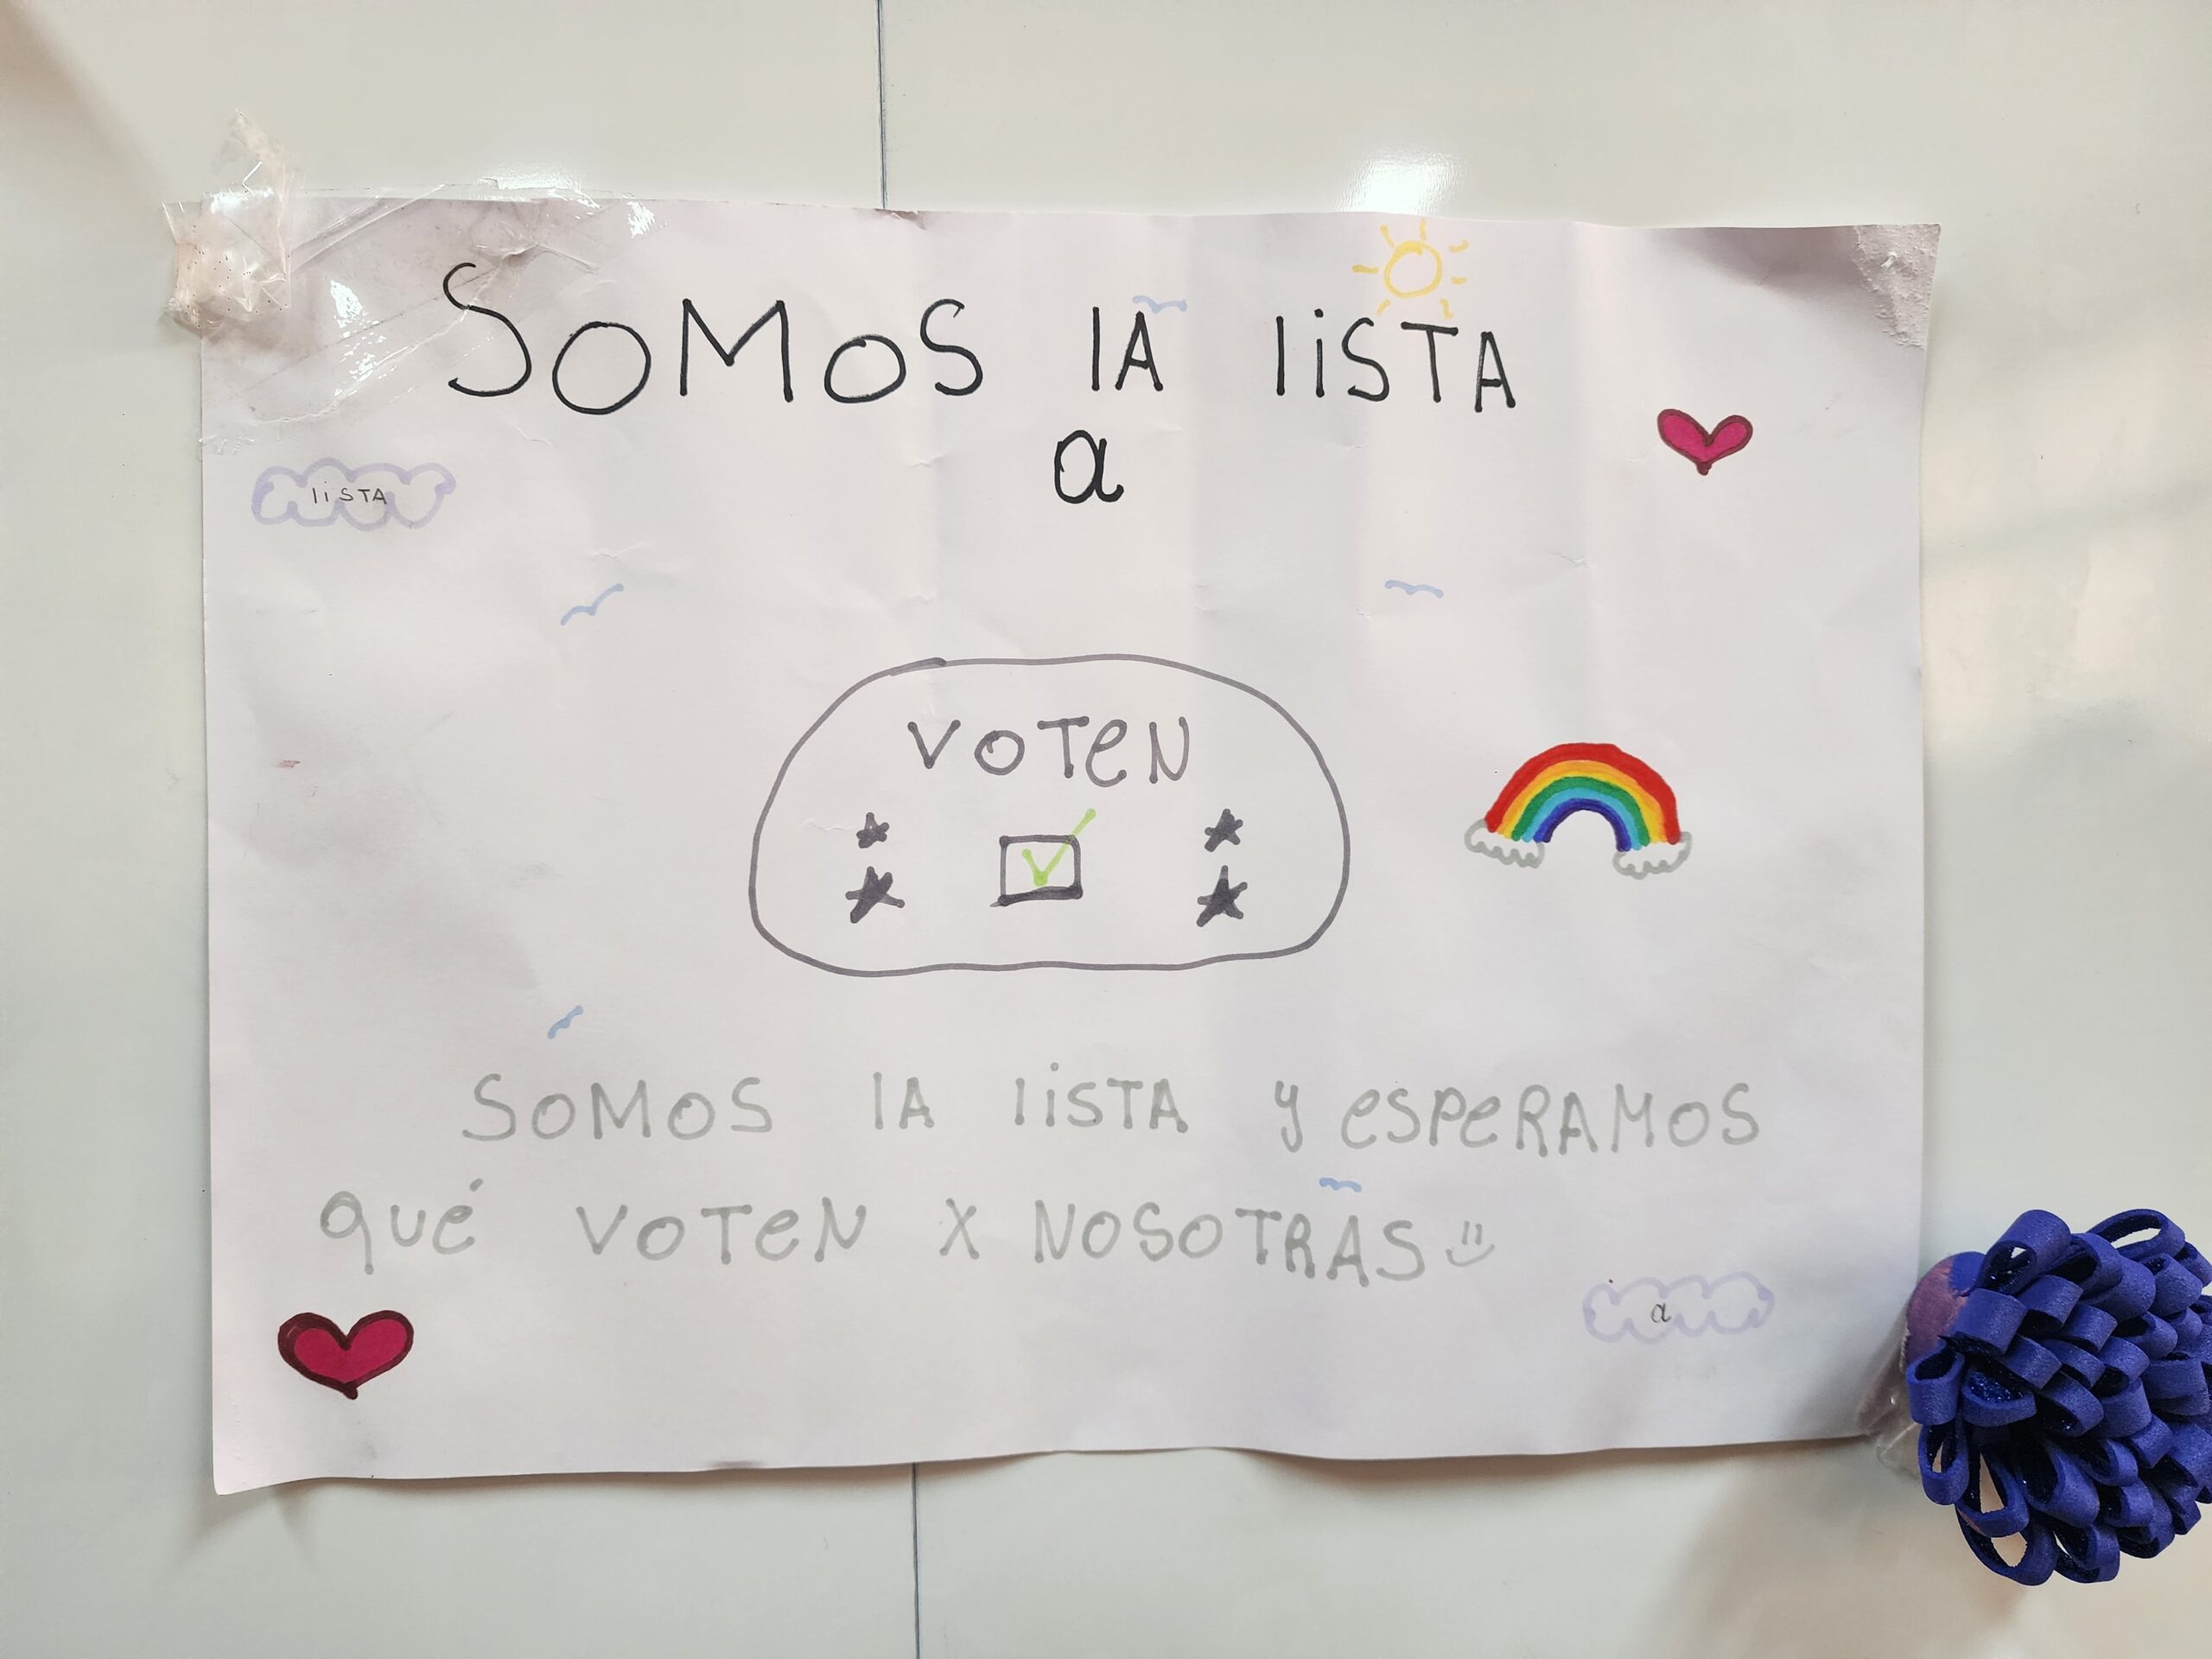 SOMOS lA liSTA
a
liSTA
VOTeN
SOMOS lA liSTA y eSPeRAMOS
qué VOTeN X NOSOTRAS
a